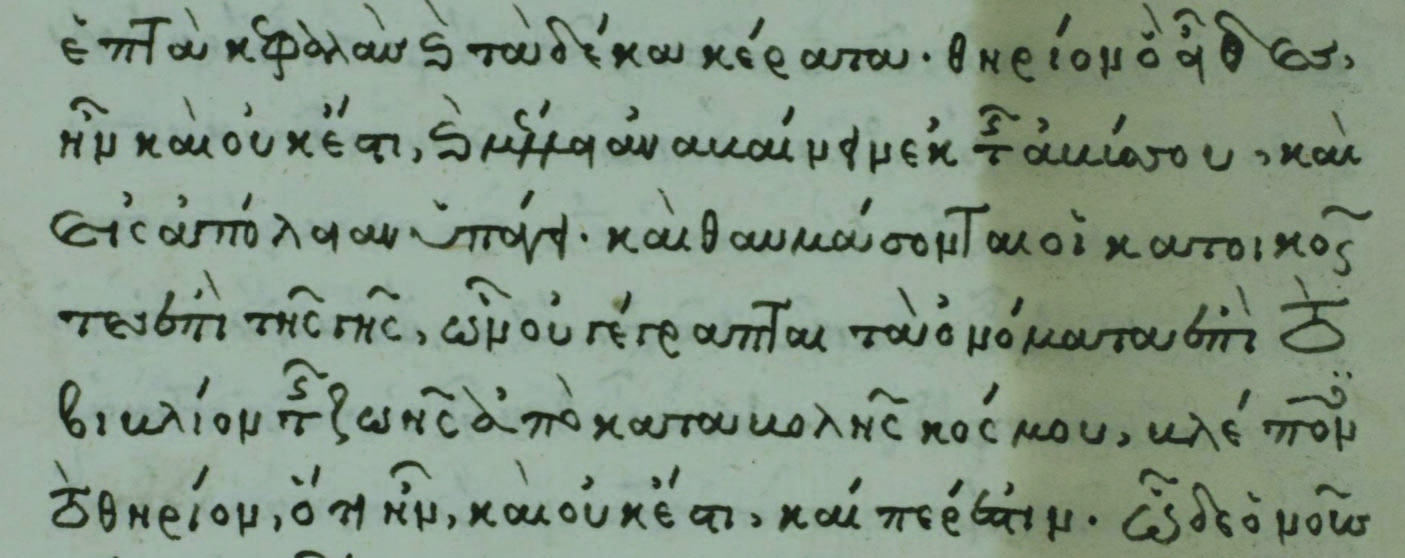 ἑπτὰ κεφαλὰς καὶ τὰ δέκα κέρατα. θηρίον ὃ εἶδες,
ἦν καὶ οὐκ ἔστι, καὶ μέλλει ἀναβαίνειν ἐκ τῆς ἀβύσσου, καὶ
εἰς ἀπόλειαν ὑπάγει. καὶ θαυμάσονται οἱ κατοικοῦν
τες ἐπὶ τῆς γῆς, ὧν οὐ γέγραπται τὰ ὀνόματα ἐπὶ τὸ
βιβλίον τῆς ζωῆς ἀπὸ καταβολῆς κόσμου,
τὸ θηρίον, ὅτι ἦν, καὶ οὐκ ἔστι, καί πέρ ἐστιν. ὧδε ὁ νοῦς